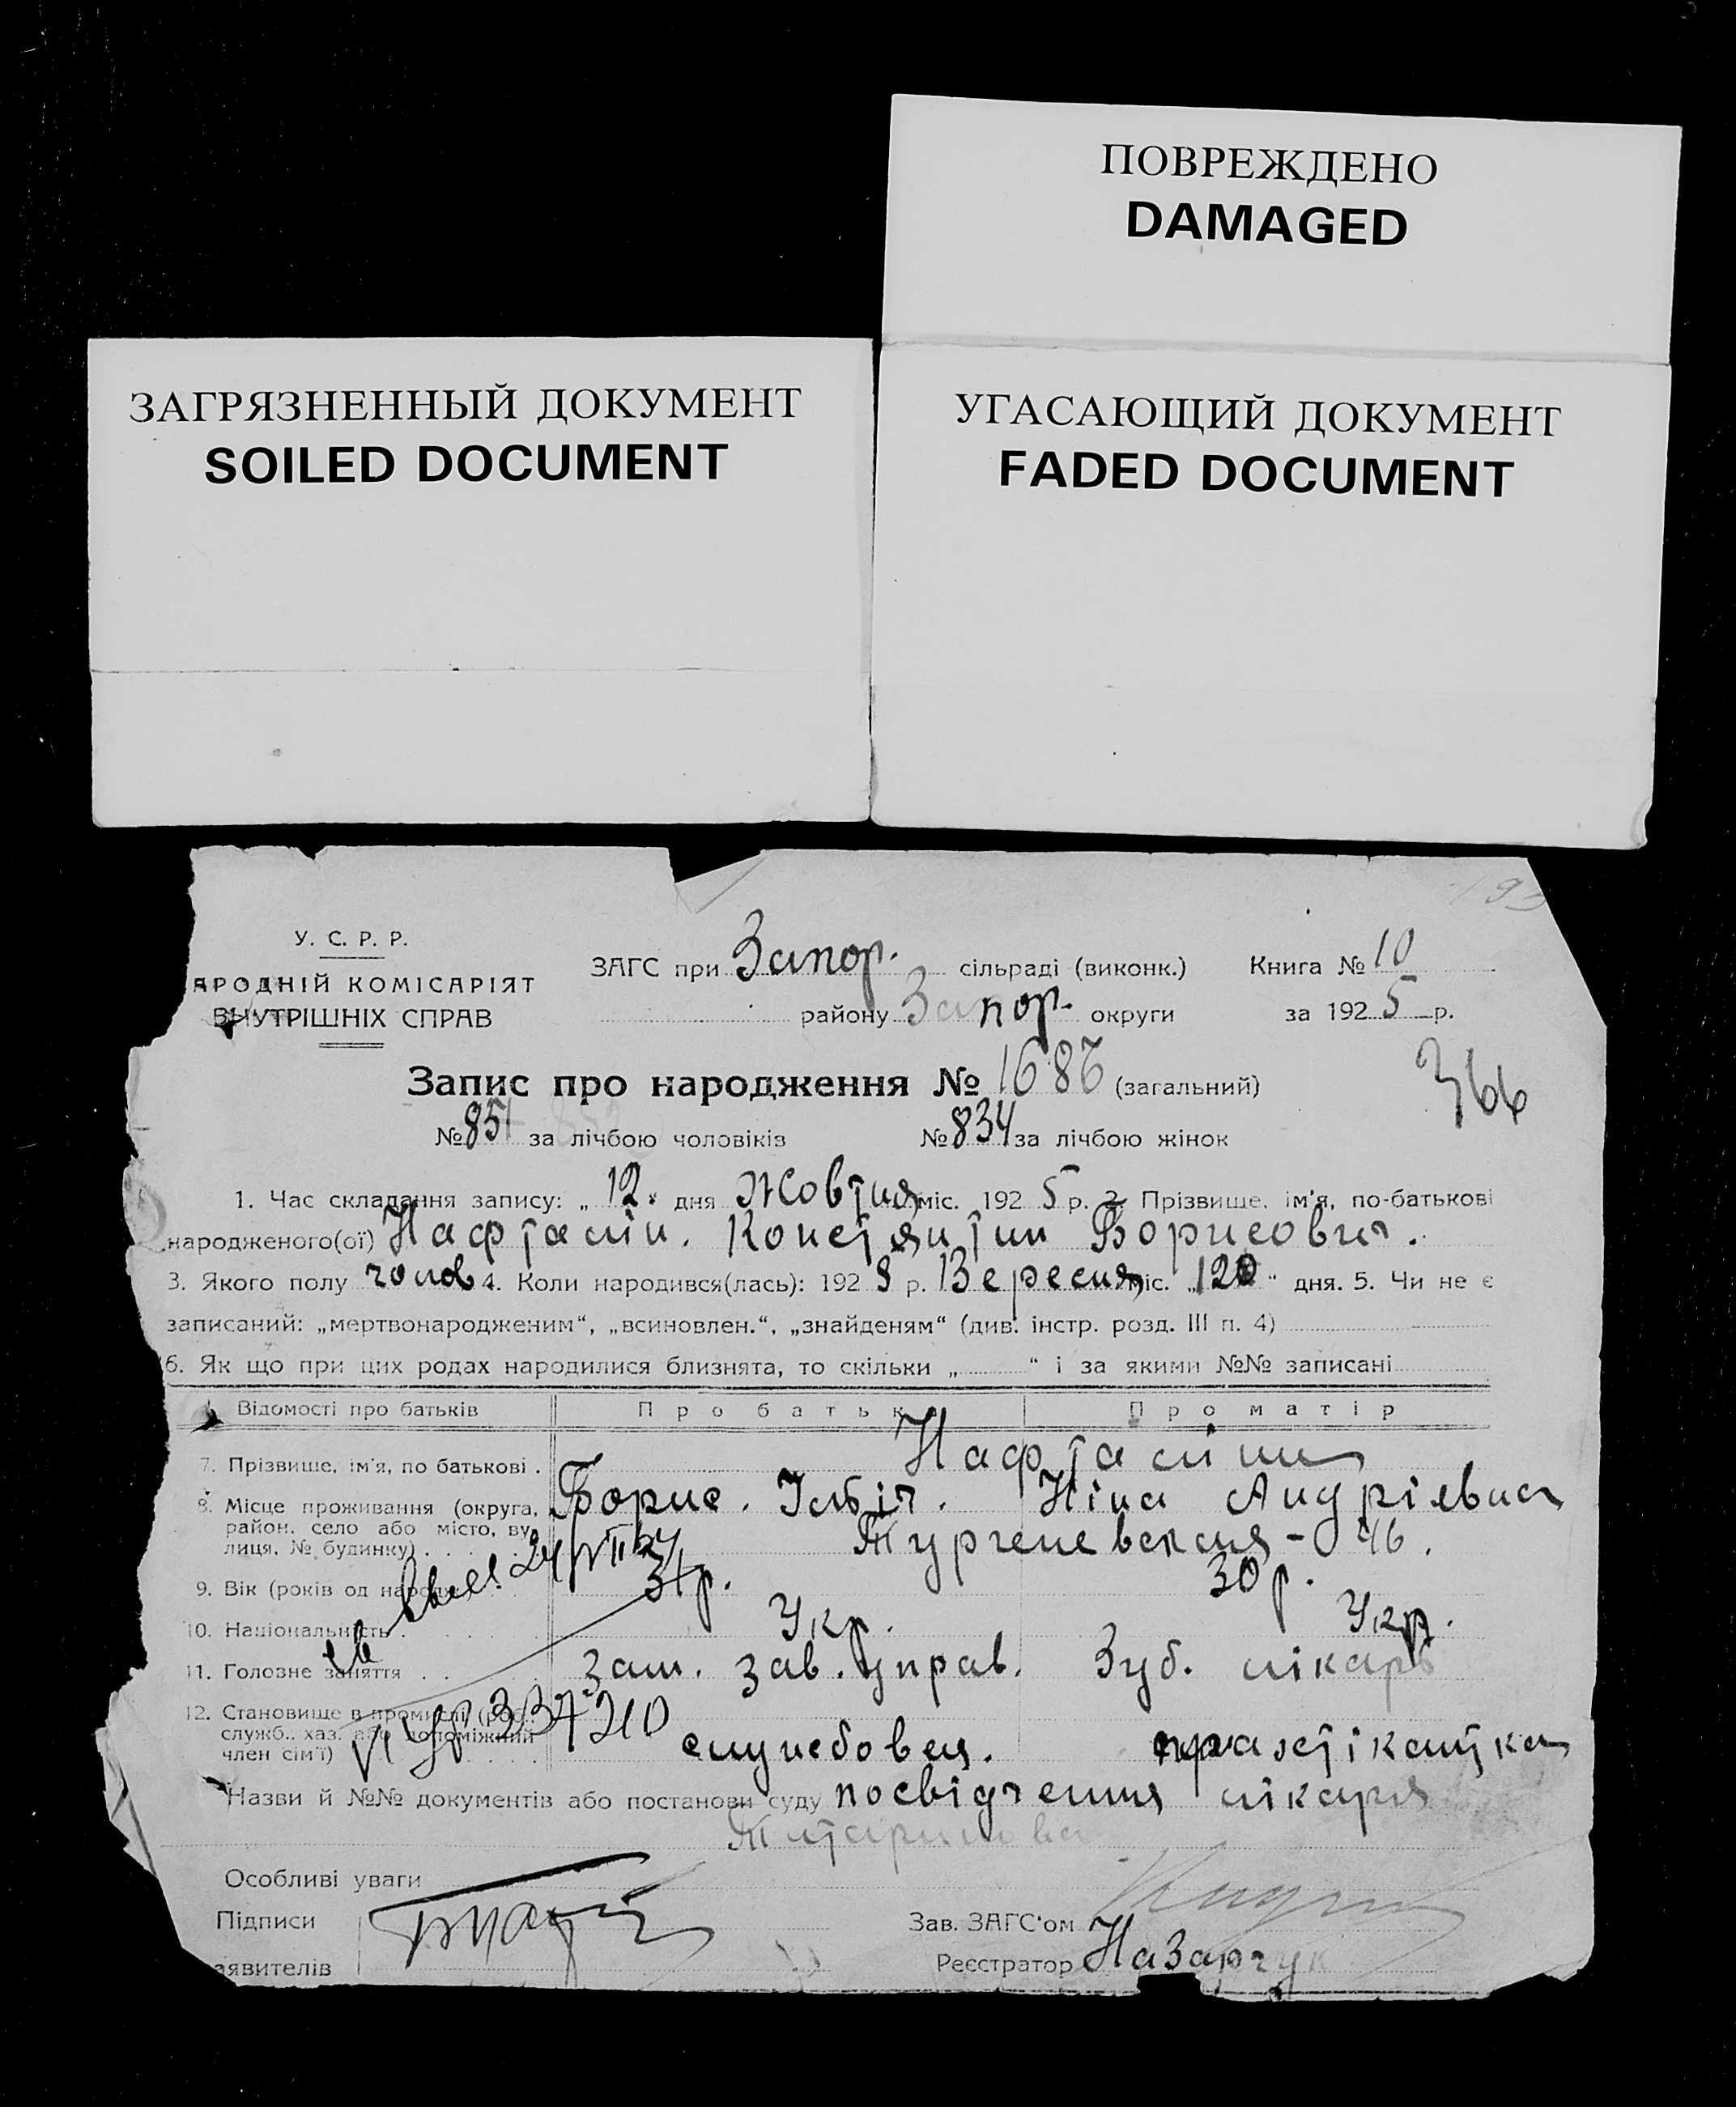 ПОВРЕЖДЕНО
DAMAGED
ЗАГРЯЗНЕННЫЙ ДОКУМЕНТ
SOILED DOCUMENT
УГАСАЮЩИЙ ДОКУМЕНТ
FADED DOCUMENT
У. С. Р. Р.
АРОДНІЙ КОМІСАРІЯТ
ВНУТРІШНІХ СПРАВ
ЗАГС при Запор. сільраді (виконк.) Книга № 10
району Запор. округи за 1925 р.
Запис про народження № 1686 (загальний)
366
№ 851 за лічбою чоловіків № 834 за лічбою жінок
1. Час складання запису: „12" дня Жовтня міс. 1925 р. 2. Прізвище, ім'я, по-батькові
народженого(ої) Нафталін. Констянтин Борисович.
3. Якого полу чолов 4. Коли народився(лась): 192 р. Вересня міс. „ “ дня. 5. Чи не є
записаний: „мертвонародженим“, „всиновлен.“, „знайденям“ (див. інстр. розд. III п. 4)
6. Як що при цих родах народилися близнята, то скільки „ “ і за якими №№ записані
Відомості про батьків Про батька Про матір
Нафталіни
7. Прізвище, ім'я, по батькові .
Борис. Ільіч. Ніна Андріевна
8. Місце проживання (округа,
район, село або місто, ву-
лиця, № будинку) . Тургеневская - 46.
9. Вік (років од народж. 31р. 30р.
10. Національність . Укр. Укр.
11. Головне заняття . . зам. зав. Управ. Зуб. лікарь
12. Становище в промислі (роб.,
служб., хаз. або допоміжний
член сім'ї) службовец. практікантка
VI 337210
Назви й №№ документів або постанови суду посвідчення лікаря
Особливі уваги
Підписи Зав. ЗАГС'ом
аявителів Реєстратор Назарчук